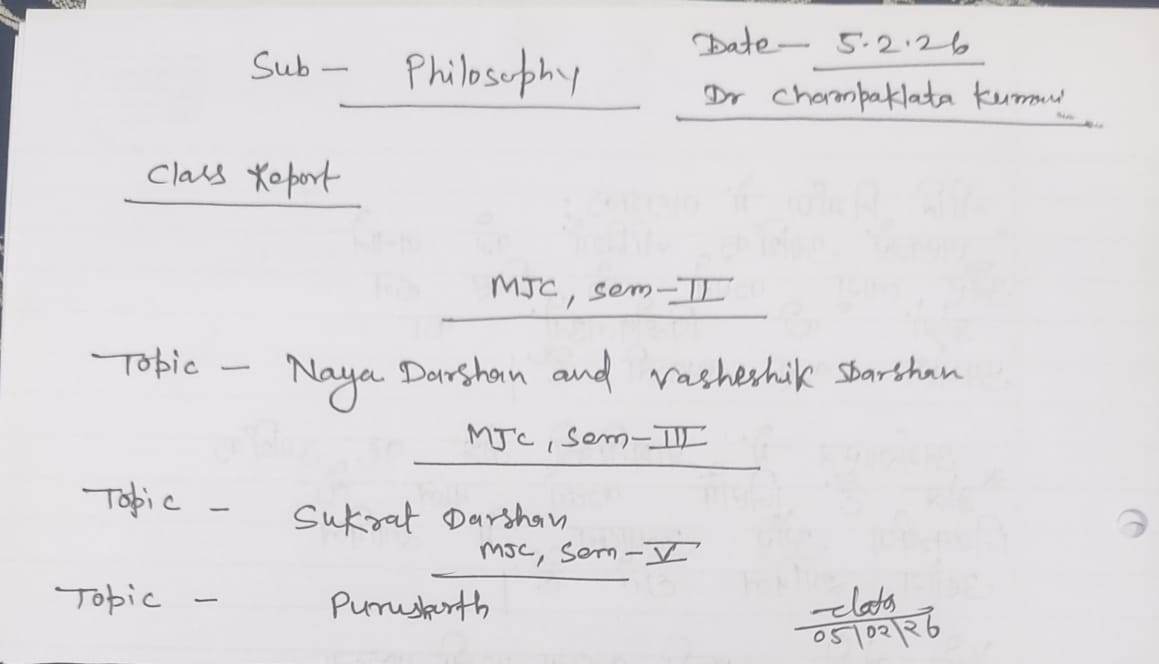 Sub - Philosophy
Date - 5.2.26
Dr Champaklata Kumari
Class Report
MJC, Sem-II
Topic - Naya Darshan and Vasheshik Darshan
MJC, Sem-III
Topic - Sukrat Darshan
MJC, Sem-V
Topic - Purusharth
Clata
05/02/26